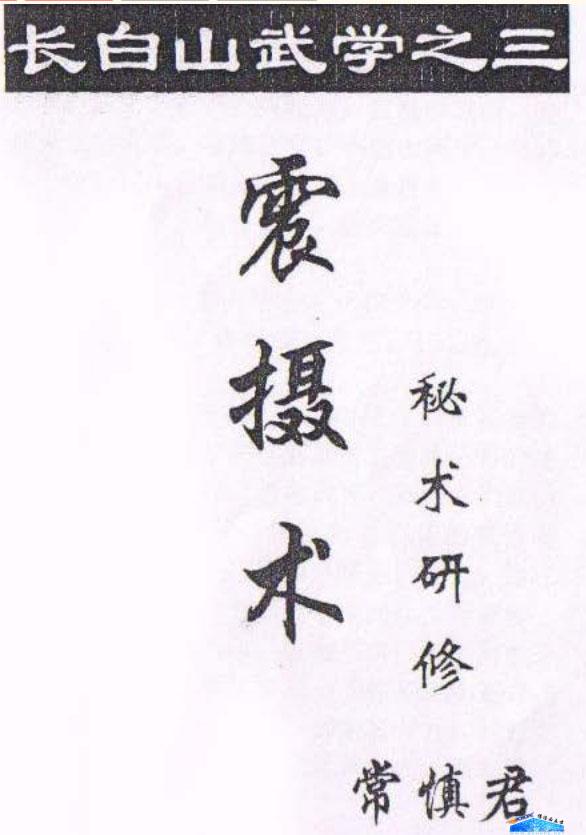 长白山武学之三
震摄术
秘术研修
常慎君